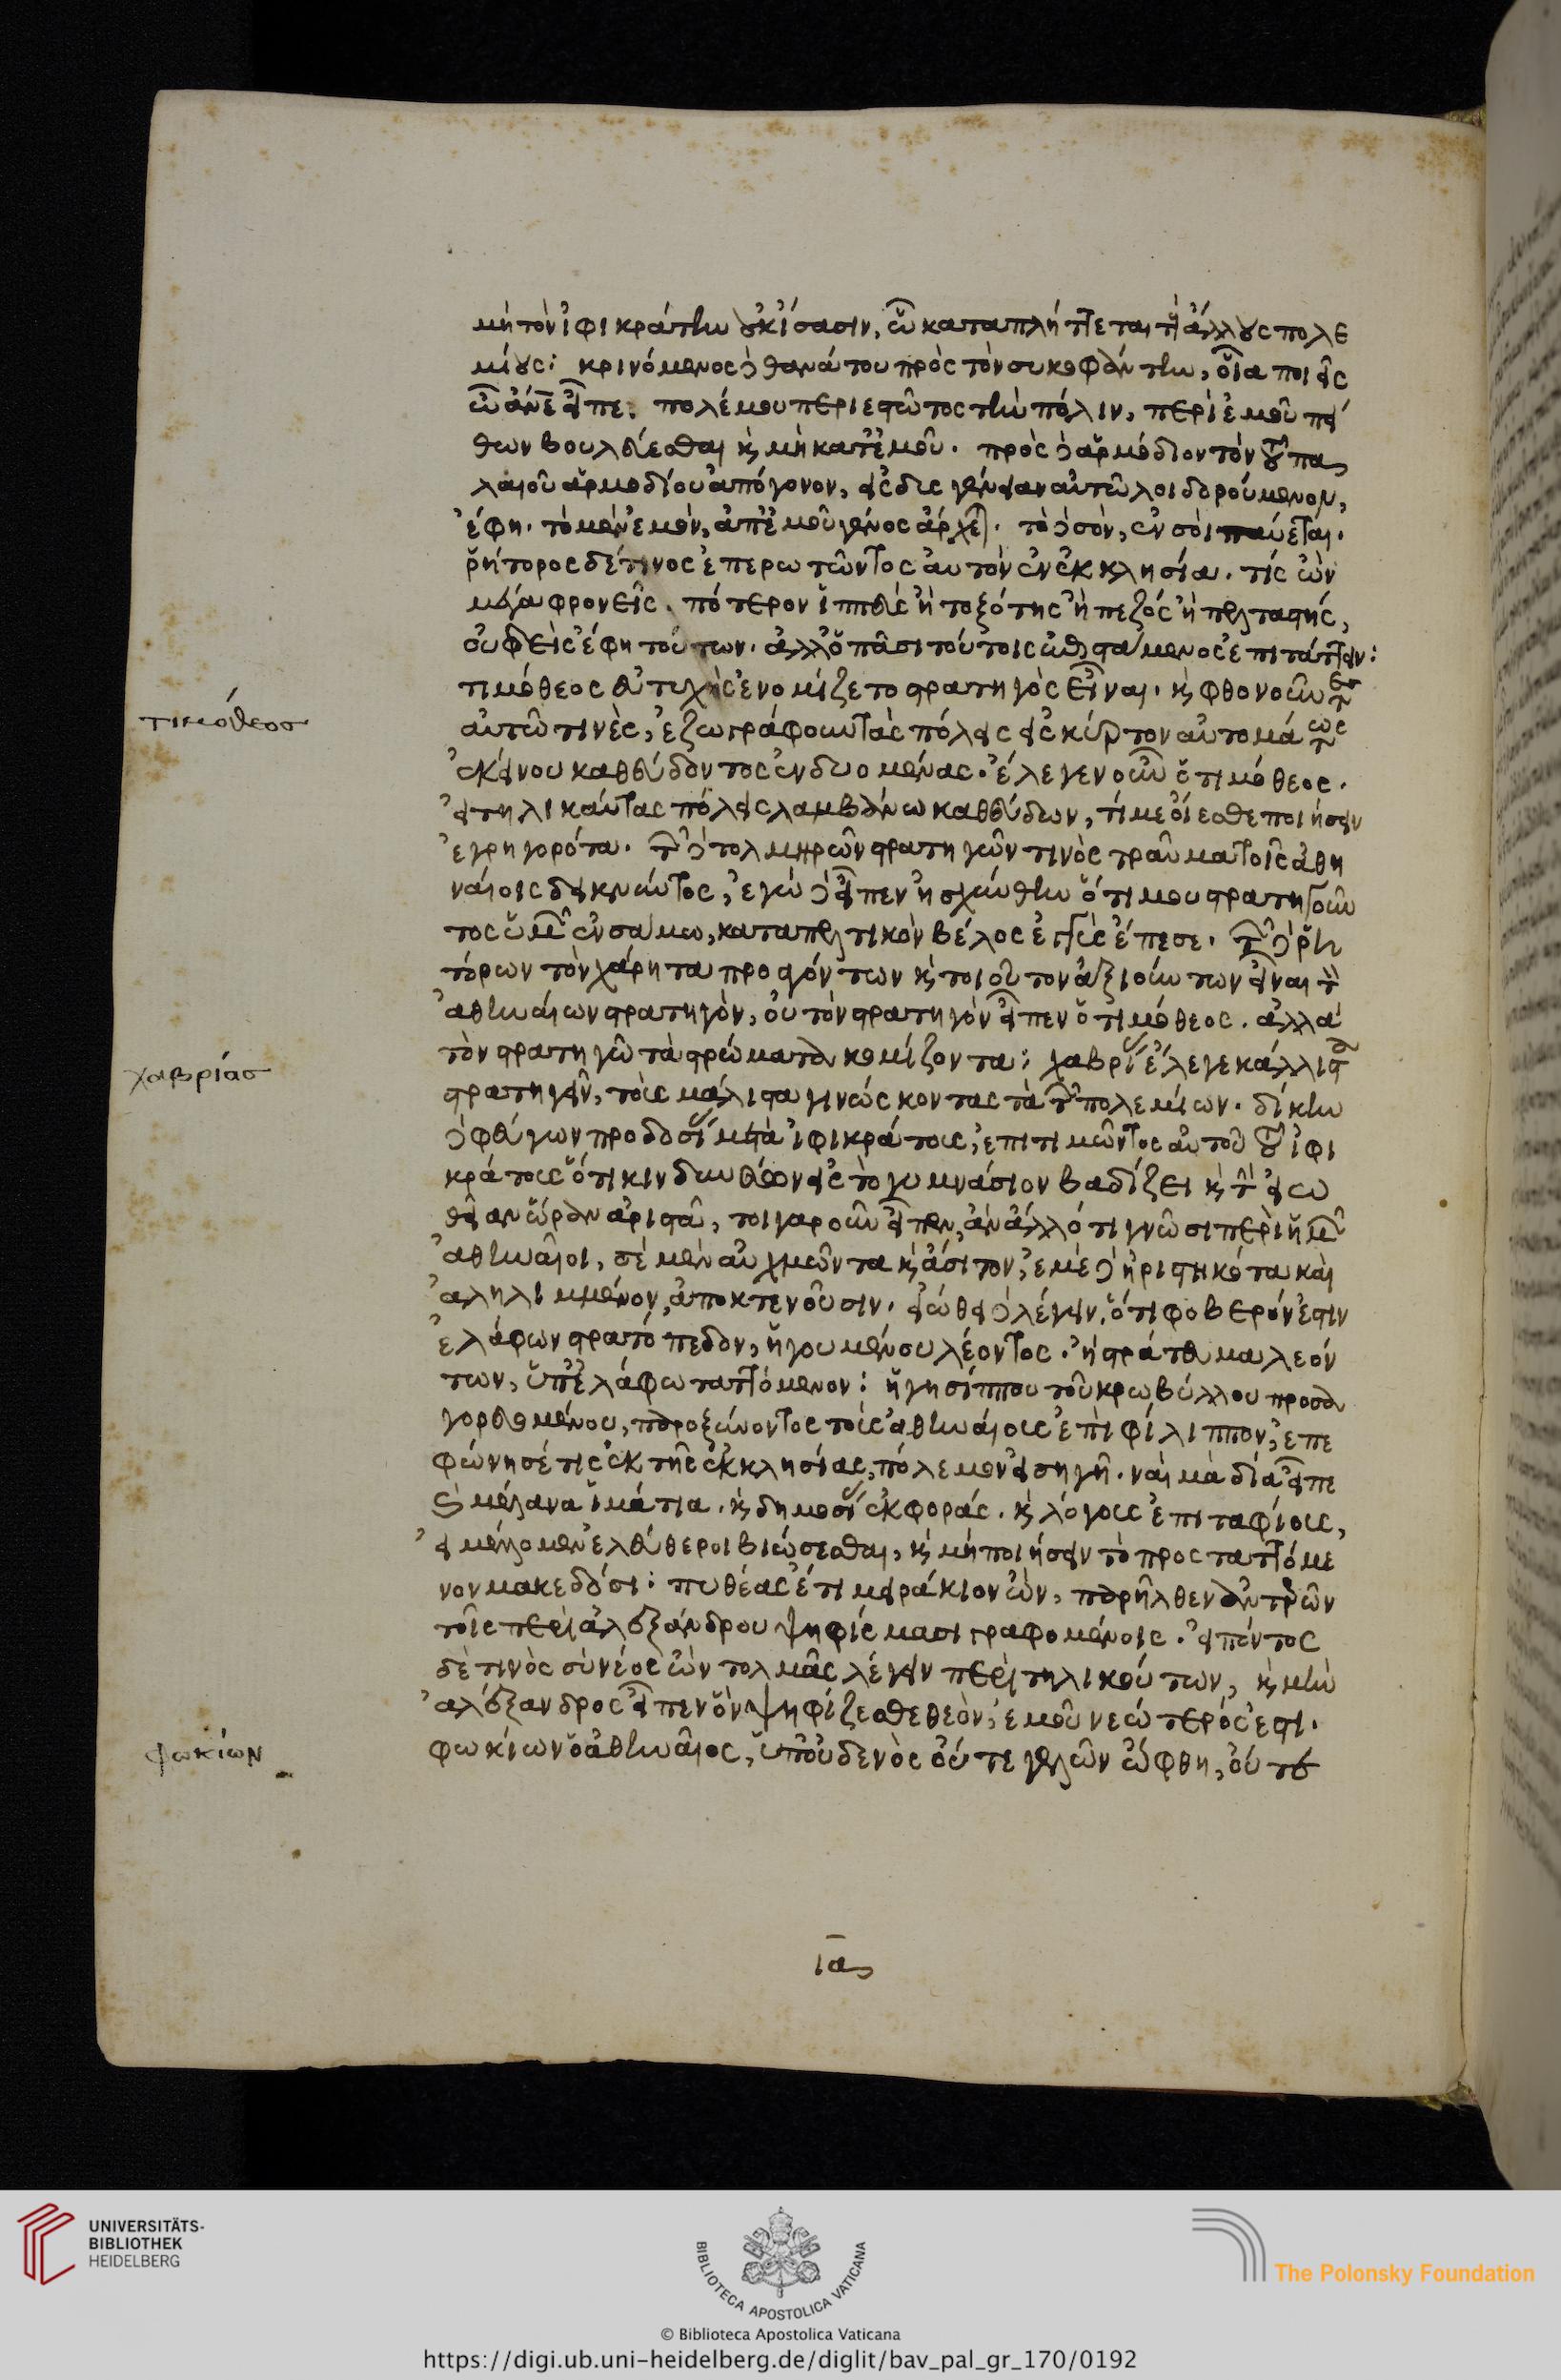 μὴ τὸν ἰφικράτην οὐκ ἴσασιν, ᾧ καταπλήττεται τοὺς ἄλλους πολε
μίους: κρινόμενος δὲ θανάτου πρὸς τὸν συκοφάντην, οἷα ποιεῖς
ὦ ἄνε εἶπε. πολέμου περιεστῶτος τὴν πόλιν, περὶ ἐμοῦ πεί
θων βουλεύεσθαι καὶ μὴ κατ' ἐμοῦ. πρὸς δὲ ἁρμόδιον τὸν τοῦ πα
λαιοῦ ἁρμοδίου ἀπόγονον, εἰς δυσγένειαν αὐτῶ λοιδορούμενον,
ἔφη. τὸ μὲν ἐμὸν, ἀπ' ἐμοῦ γένος ἄρχεται. τὸ δὲ σὸν, ἐν σοὶ παύεται.
ῥήτορος δέ τινος ἐπερωτῶντος αὐτὸν ἐν ἐκκλησία. τίς ὢν
μέγα φρονεῖς. πότερον ἱππεὺς ἢ τοξότης ἢ πεζός ἢ πελταστής,
οὐδεὶς ἔφη τούτων. ἀλλ' ὁ πᾶσι τούτοις ἐπιστάμενος ἐπιτάττειν:
τιμόθεος
τιμόθεος εὐτυχὴς ἐνομίζετο στρατηγὸς εἶναι. καὶ φθονοῦντες
αὐτῶ τινὲς, ἐζωγράφουν τὰς πόλεις εἰς κύρτον αὐτομάτως
ἐκείνου καθεύδοντος ἐνδυομένας. ἔλεγεν οὖν ὁ τιμόθεος.
εἰ τηλικαύτας πόλεις λαμβάνω καθεύδων, τί με οἴεσθε ποιήσειν
ἐγρηγορότα. τῶν δὲ τολμηρῶν στρατηγῶν τινὸς τραῦμα τοῖς ἀθη
ναίοις δεικνύντος, ἐγὼ δὲ εἶπεν ἠσχύνθην ὅτι μου στρατηγοῦν
τος ὑμῶν ἐν σάμω, καταπελτικὸν βέλος ἐγγὺς ἔπεσε. τῶν δὲ ῥη
τόρων τὸν χάρητα προαγόντων καὶ τοιοῦτον ἀξιούντων εἶναι τὸν
ἀθηναίων στρατηγὸν, οὐ τὸν στρατηγὸν εἶπεν ὁ τιμόθεος. ἀλλὰ
χαβρίασ
τὸν στρατηγῶ τὰ στρώματα κομίζοντα: χαβρίας ἔλεγε κάλλιστα
στρατηγεῖν, τοὺς μάλιστα γινώσκοντας τὰ τῶν πολεμίων. δίκην
δὲ φεύγων προδοσίας μετὰ ἰφικράτους, ἐπιτιμῶντος αὐτοῦ τοῦ ἰφι
κράτους ὅτι κινδυνεύων εἰς τὸ γυμνάσιον βαδίζει καὶ τὴν εἰω
θεῖαν ὥραν ἀριστᾶ, τοιγαροῦν εἶπεν, ἂν ἄλλό τι γνῶσι περὶ ἡμῶν
ἀθηναῖοι, σὲ μὲν αὐχμῶντα καὶ ἄσιτον, ἐμὲ δὲ ἠριστηκότα καὶ
ἀληλιμμένον, ἀποκτενοῦσιν. εἰώθει δὲ λέγειν, ὅτι φοβερόν ἐστιν
ἐλάφων στρατόπεδον, ἡγουμένου λέοντος. ἢ στράτευμα λεόν
των, ὑπ' ἐλάφω ταττόμενον: ἡγησίππου τοῦ κρωβύλλου προσα
γορευομένου, παροξύνοντος τοὺς ἀθηναίους ἐπὶ φίλιππον, ἐπε
φώνησέ τις ἐκ τῆς ἐκκλησίας, πόλεμον εἰσηγῆ. ναὶ μὰ δία εἶπε
καὶ μέλανα ἱμάτια. καὶ δημοσίας ἐκφοράς. καὶ λόγους ἐπιταφίους,
εἰ μέλλομεν ἐλεύθεροι βιώσεσθαι, καὶ μὴ ποιήσειν τὸ προσταττόμε
νον μακεδόσι: πυθέας ἔτι μειράκιον ὢν, παρῆλθεν ἀντερῶν
τοῖς περὶ ἀλεξάνδρου ψηφίσμασι γραφομένοις. εἰπόντος
δὲ τινὸς σὺ νέος ὢν τολμᾶς λέγειν περὶ τηλικούτων, καὶ μὴν
ἀλέξανδρος εἶπεν ὃν ψηφίζεσθε θεὸν, ἐμοῦ νεώτερός ἐστι.
φωκίων
φωκίων ὁ ἀθηναῖος, ὑπ' οὐδενὸς οὔτε γελῶν ὤφθη, οὔτε
ια
UNIVERSITÄTS-
BIBLIOTHEK
HEIDELBERG
BIBLIOTECA APOSTOLICA VATICANA
The Polonsky Foundation
© Biblioteca Apostolica Vaticana
https://digi.ub.uni-heidelberg.de/diglit/bav_pal_gr_170/0192